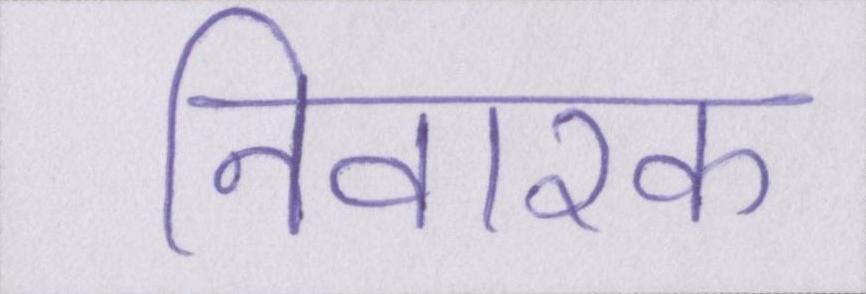 निवारक